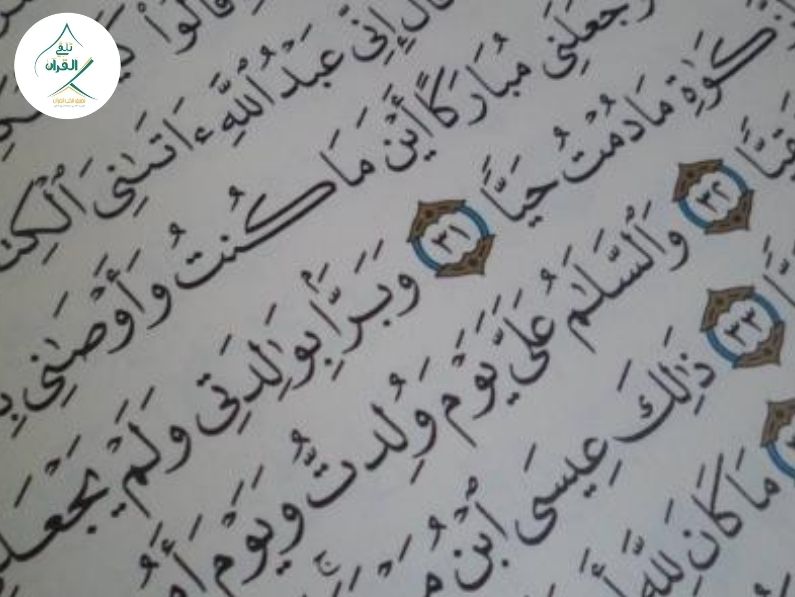 تلقي
القرآن
قَالُوا۟
إِنِّي عَبْدُ ٱللَّهِ ءَاتَىٰنِيَ ٱلْكِتَ
وَجَعَلَنِي مُبَارَكًا أَيْنَ مَا كُنتُ وَأَوْصَٰنِي بِ
كَوٰةِ مَا دُمْتُ حَيًّا ٣١ وَبَرًّۢا بِوَٰلِدَتِي وَلَمْ يَجْعَل
قِيًّا ٣٢ وَٱلسَّلَٰمُ عَلَيَّ يَوْمَ وُلِدتُّ وَيَوْمَ أَمُ
٣٣ ذَٰلِكَ عِيسَى ٱبْنُ مَ
مَا كَانَ لِلَّهِ أَ